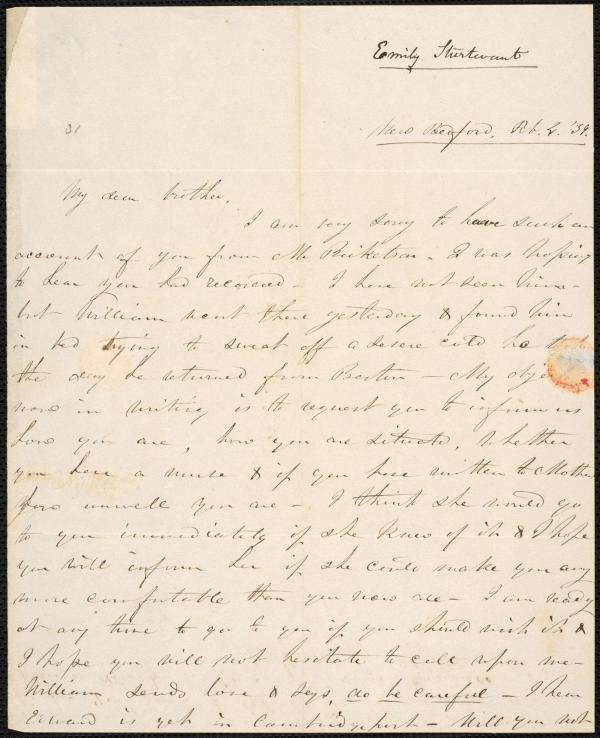 Emily Sturtevant
31
New Bedford, Feb. 2. '39.
My dear brother,
I am very sorry to have such an
account of you from Mr Ricketson. I was hoping
to hear you had recovered - I have not seen him -
but William went there yesterday & found him
in bed trying to sweat off a severe cold he
the day he returned from Boston - My
now in writing is to request you to inform us
how you are, how you are situated, whether
you have a nurse & if you have written to Mother
how unwell you are - I think she would go
to you immediately if she knew of it & I hope
you will inform her if she could make you any
more comfortable than you now are - I am ready
at any time to go to you if you should wish it &
I hope you will not hesitate to call upon me -
William sends love & says, do be careful - I hear
Edward is yet in Cambridgeport - Will you not